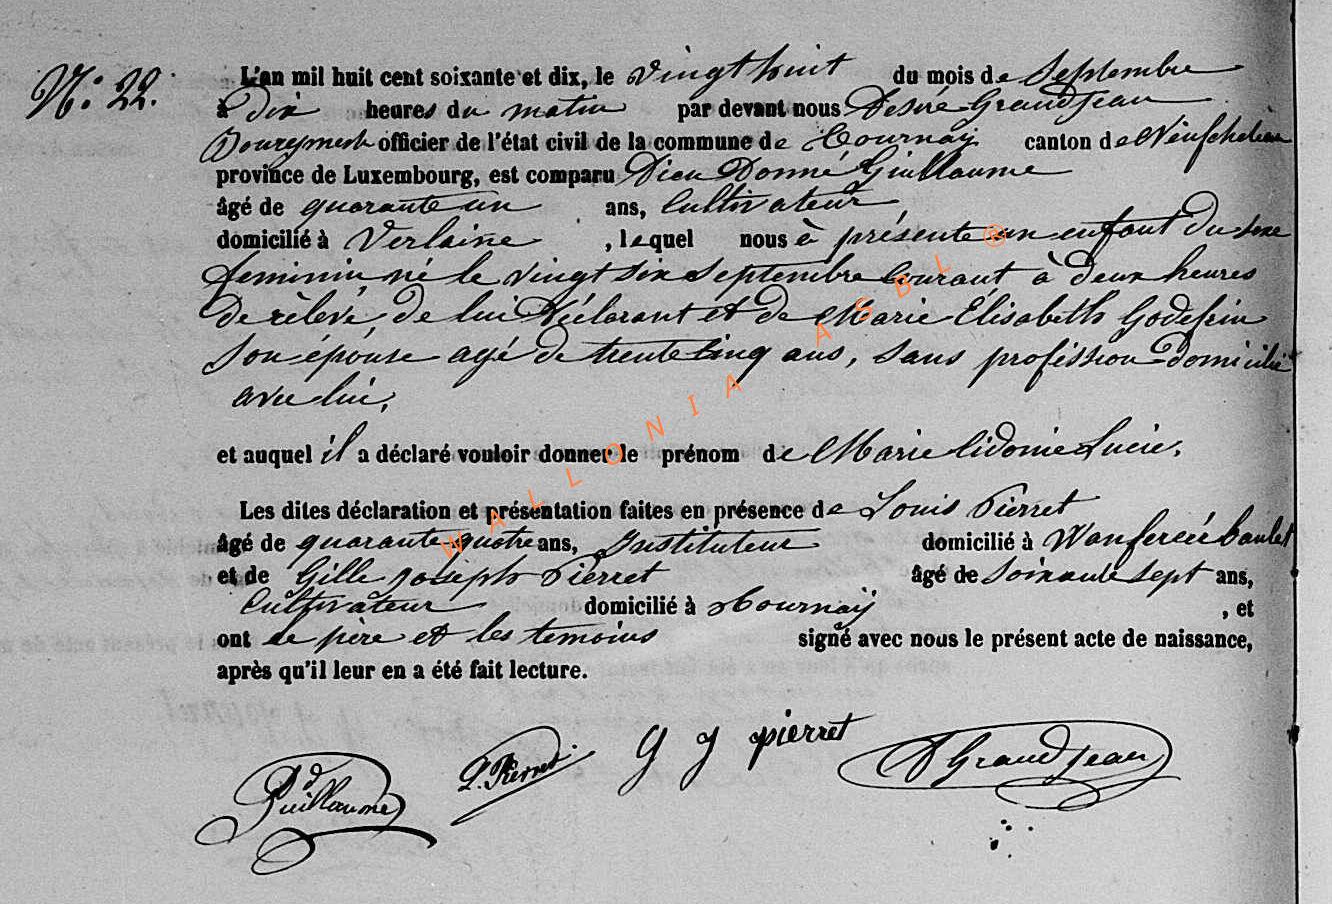 N.° 22.
L'an mil huit cent soixante et dix, le vingt huit du mois de Septembre
à Dix heures du matin par devant nous Desiré Grandjean
Bourgmest officier de l'état civil de la commune de Tournay canton de Neufchateau
province de Luxembourg, est comparu Dieu Donné Guillaume
âgé de quarante un ans, Cultivateur
domicilié à Verlaine , lequel nous à présenté un enfant du sexe
feminin, né le vingt six Septembre Courant à deux heures
de rélevé, de lui Déclarant et de Marie Elisabeth Godefrin
son épouse agé de trente cinq ans, sans proféssion domicilié
avec lui,
et auquel il a déclaré vouloir donner le prénom de Marie Sidonie Lucie.
Les dites déclaration et présentation faites en présence de Louis Pierret
âgé de quarante quatre ans, Instituteur domicilié à Wanfercée baulet
et de Gille Joseph Pierret âgé de soixante sept ans,
Cultivateur domicilié à Tournaÿ , et
ont le père et les temoins signé avec nous le présent acte de naissance,
après qu'il leur en a été fait lecture.
Dd Guillaume L. Pierret G J pierret D Grandjean
WALLONIA ASBL ®